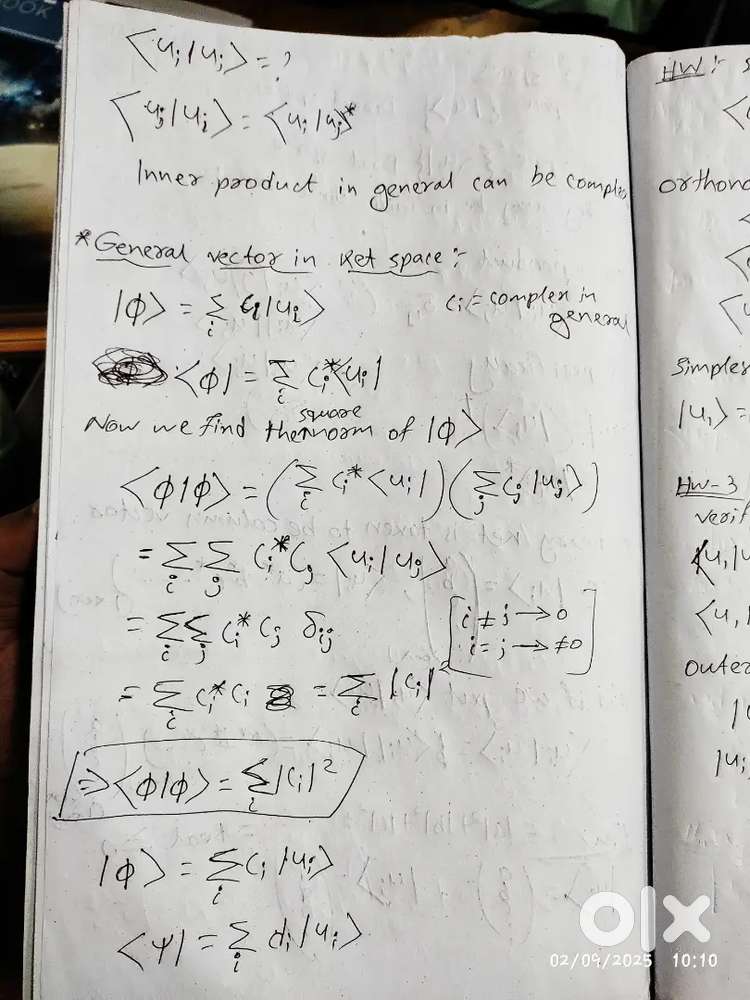 ⟨uᵢ|uⱼ⟩ = ?
⟨uⱼ|uᵢ⟩ = ⟨uᵢ|uⱼ⟩*
Inner product in general can be complex
*General vector in ket space:-
|ϕ⟩ = Σᵢ cᵢ|uᵢ⟩
cᵢ = complex in
general
⟨ϕ| = Σᵢ cᵢ*⟨uᵢ|
Now we find the square norm of |ϕ⟩
⟨ϕ|ϕ⟩ = (Σᵢ cᵢ*⟨uᵢ|)(Σⱼ cⱼ|uⱼ⟩)
= Σᵢ Σⱼ cᵢ* cⱼ ⟨uᵢ|uⱼ⟩
= Σᵢ Σⱼ cᵢ* cⱼ δᵢⱼ
[i ≠ j → 0
i = j → ≠0]
= Σᵢ cᵢ* cᵢ = Σᵢ |cᵢ|²
⇒ ⟨ϕ|ϕ⟩ = Σᵢ |cᵢ|²
|ϕ⟩ = Σᵢ cᵢ|uᵢ⟩
⟨ψ| = Σᵢ dᵢ|uᵢ⟩
HW:-
|u₁⟩ =
HW-3
⟨u₁|u
⟨u₁|
olx
02/09/2025 10:10